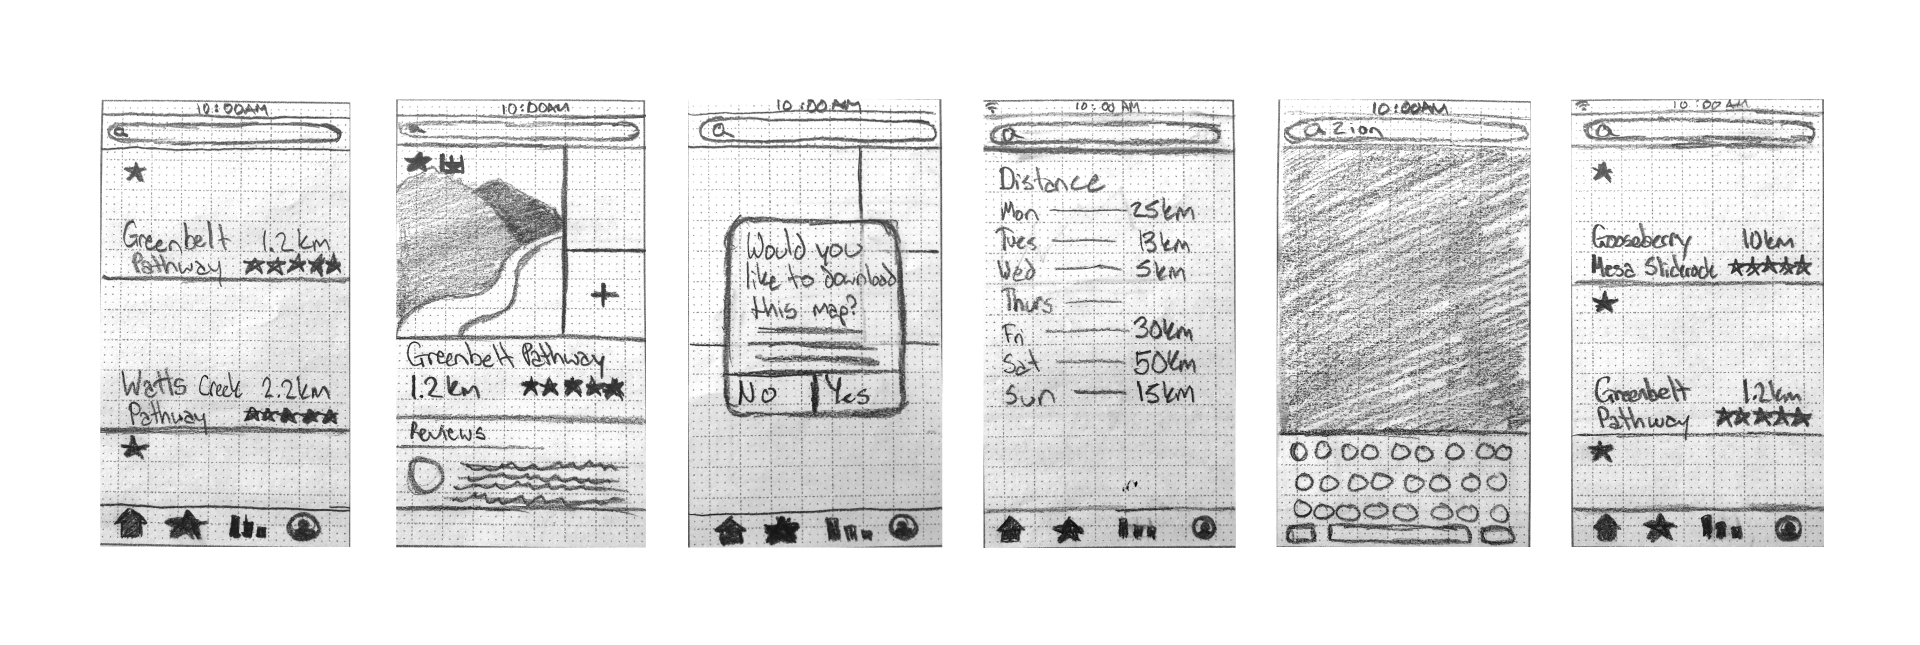 10:00AM
Greenbelt 1.2km
Pathway
Watts Creek 2.2km
Pathway
10:00AM
Greenbelt Pathway
1.2km
Reviews
10:00AM
Would you
like to download
this map?
No Yes
10:00 AM
Distance
Mon 25km
Tues 13km
Wed 5km
Thurs
Fri 30km
Sat 50km
Sun 15km
10:00AM
Zion
10:00 AM
Gooseberry 10km
Mesa Slickrock
Greenbelt 1.2km
Pathway